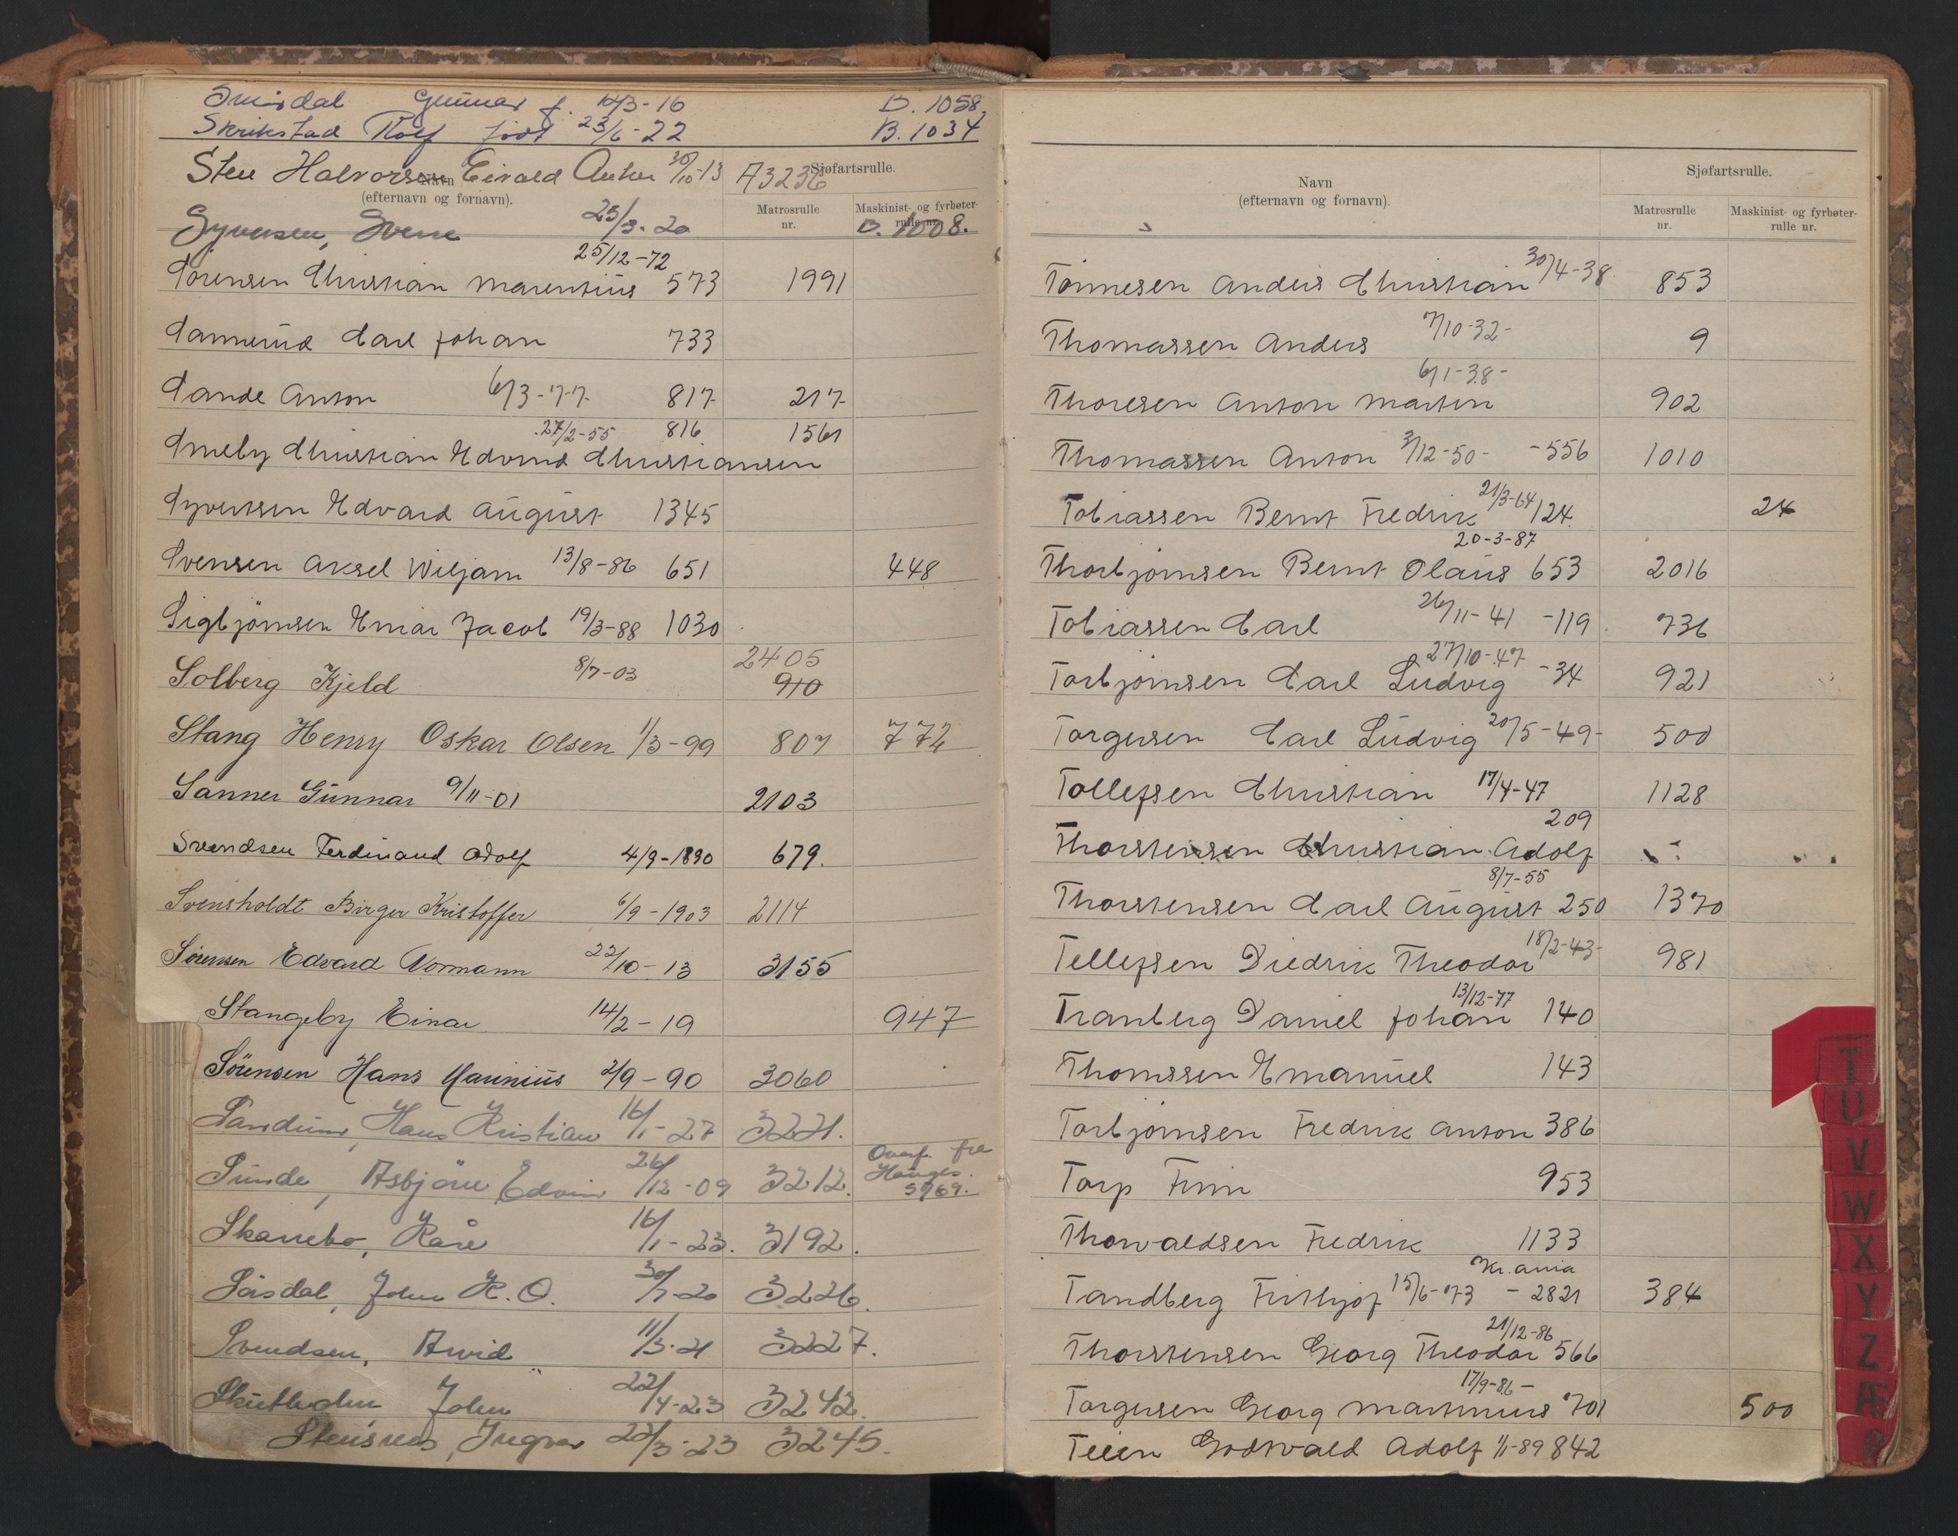 Smisdal Gunnar f. 14/3-16 D. 1058
Skrikstad Rolf født 23/6-22 B. 1034
Sten Halvorsen Eivald Anker 30/10-13 A3236
Navn
(efternavn og fornavn).
Sjøfartsrulle.
Matrosrulle nr.
Maskinist- og fyrbøter-rulle nr.
Syversen, Sverre 25/3-20 D. 1008.
25/12-72
Sørensen Christian Marentius 573 1991
Sannerud Carl Johan 733
Sande Anton 6/3-77 817 217
27/2-55 816 1561
Smeby Christian Edvind Christiansen
Syvertsen Edvard August 1345
Svensen Aksel Wiljam 13/8-86 651 448
Sigbjørnsen Einar Jacob 19/3-88 1030
Solberg Kjeld 8/7-03 2405
910
Stang Henry Oskar Olsen 1/3-99 807 772
Sanner Gunnar 9/11-01 2103
Svendsen Ferdinand Adolf 4/9-1890 679.
Svensholdt Birger Kristoffer 6/9-1903 2114
Sørensen Edvard Normann 22/10-13 3155
Stangeby Einar 14/2-19 947
Sørensen Hans Marinius 2/9-90 3060
Sandum, Hans Kristian 16/1-27 3221.
Sunde, Asbjørn Edvin 26/12-09 3212. Overf. fra Hauges. 5969.
Skarrebo, Kåre 16/1-23. 3192.
Sørsdal, John K. O. 30/7-20 3226.
Svendsen, Arvid 11/3-21 3227.
Skutholm John 22/4-23 3242.
Stensnes, Ingvar 22/3-23 3245.
Navn
(efternavn og fornavn).
Sjøfartsrulle.
Matrosrulle nr.
Maskinist- og fyrbøter-rulle nr.
Tønnesen Anders Christian 30/4-38. 853
Thomassen Anders 7/10-32- 9
Thoresen Anton Martin 6/1-38- 902
Thomassen Anton 3/12-50- -556 1010
Tobiassen Bernt Fredrik 21/3-64 124. 24
20-3-87
Thorbjørnsen Bernt Olaus 653 2016
Tobiassen Carl 26/11-41 -119. 736
Torbjørnsen Carl Ludvig 27/10-47 -34 921
Torgersen Carl Ludvig 20/5-49- 500
Tollefsen Christian 17/4-47 1128
209
Thorstensen Christian Adolf
8/7-55
Thorstensen Carl August 250 1370
Tellefsen Diedrik Theodor 18/2-43- 981
Tranberg Daniel Johan 13/12-77 140
Thomssen Emanuel 143
Torbjørnsen Fredrik Anton 386
Torp Finn 953
Thorvaldsen Fredrik 1133
Kr.ania
Tandberg Frithjof 15/6-73 - 2821 384
21/12-86
Thorstensen Georg Theodor 566
17/9-86-
Torgersen Georg Martinius 701 500
Teien Godtvald Adolf 1/1-89 842
T
U
V
W
X
Y
Z
Æ
Ø